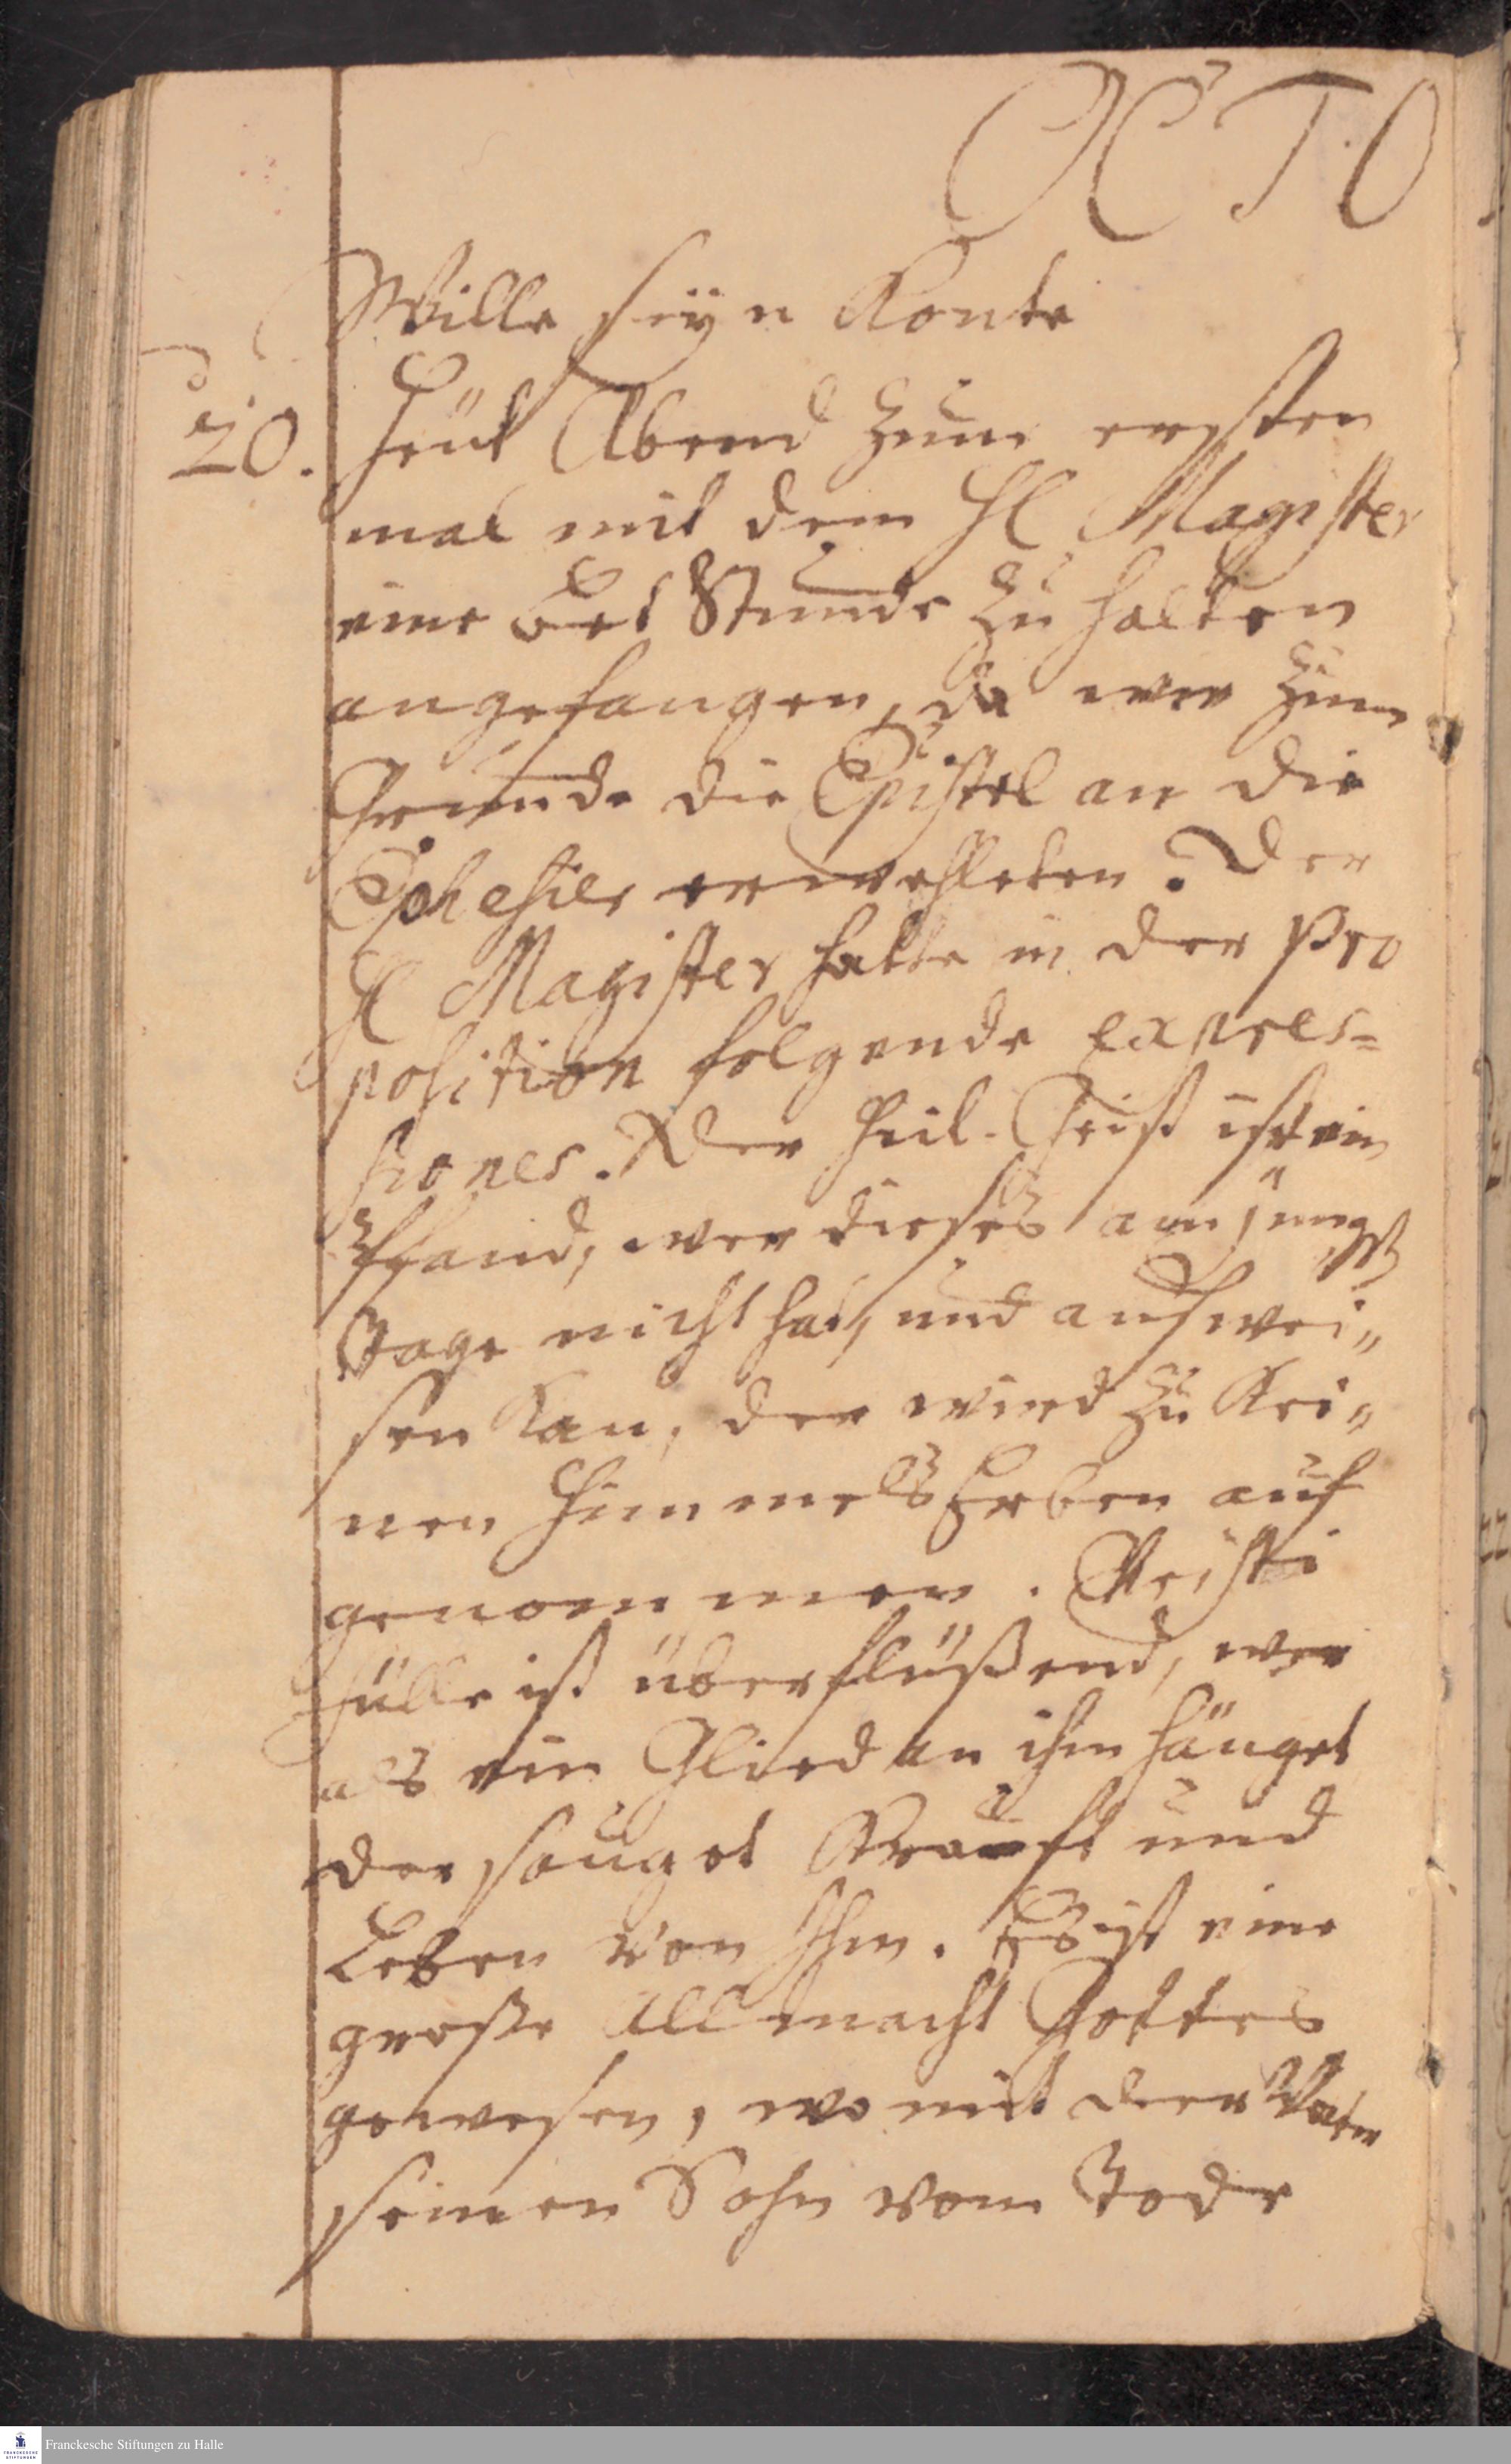 OCTO
Wille seÿn Konte
20. Heut Abend zum ersten
mal mit dem Hl Magister
eine Bet Stunde zu halten
angefangen, da wir zum
Grunde die Epistel an die
Ephesier erwehleten. Der
Hl Magister hatte in der Pro
position folgende expres=
siones. Der Heil. Geist ist ein
Pfand, wer dieses am jüngst
Tage nicht hat, und aufwei„
sen Kan, der wird zu Kei„
nen Himmels Erben auf
genommen. Christi
Fülle ist überflüßend, wer
als ein Glied an ihm hänget
der sauget Krafft und
Leben von Ihm. Es ist eine
große Allmacht Gottes
gewesen, womit der Vater
seinen Sohn vom Tode
Franckesche Stiftungen zu Halle